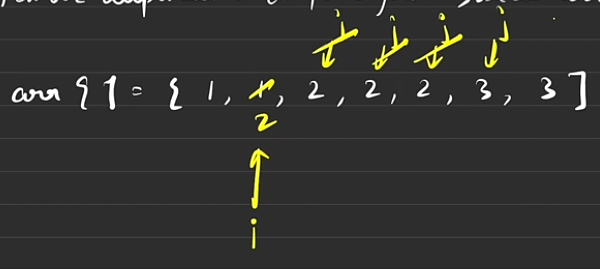 j j j j
arr { ] = { 1, 1, 2, 2, 2, 3, 3 ]
2
i